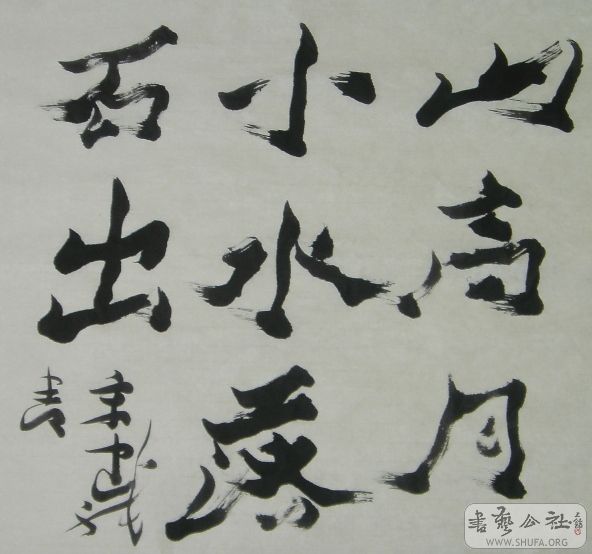 山高月
小水落
石出
書
書藝公社
WWW.SHUFA.ORG